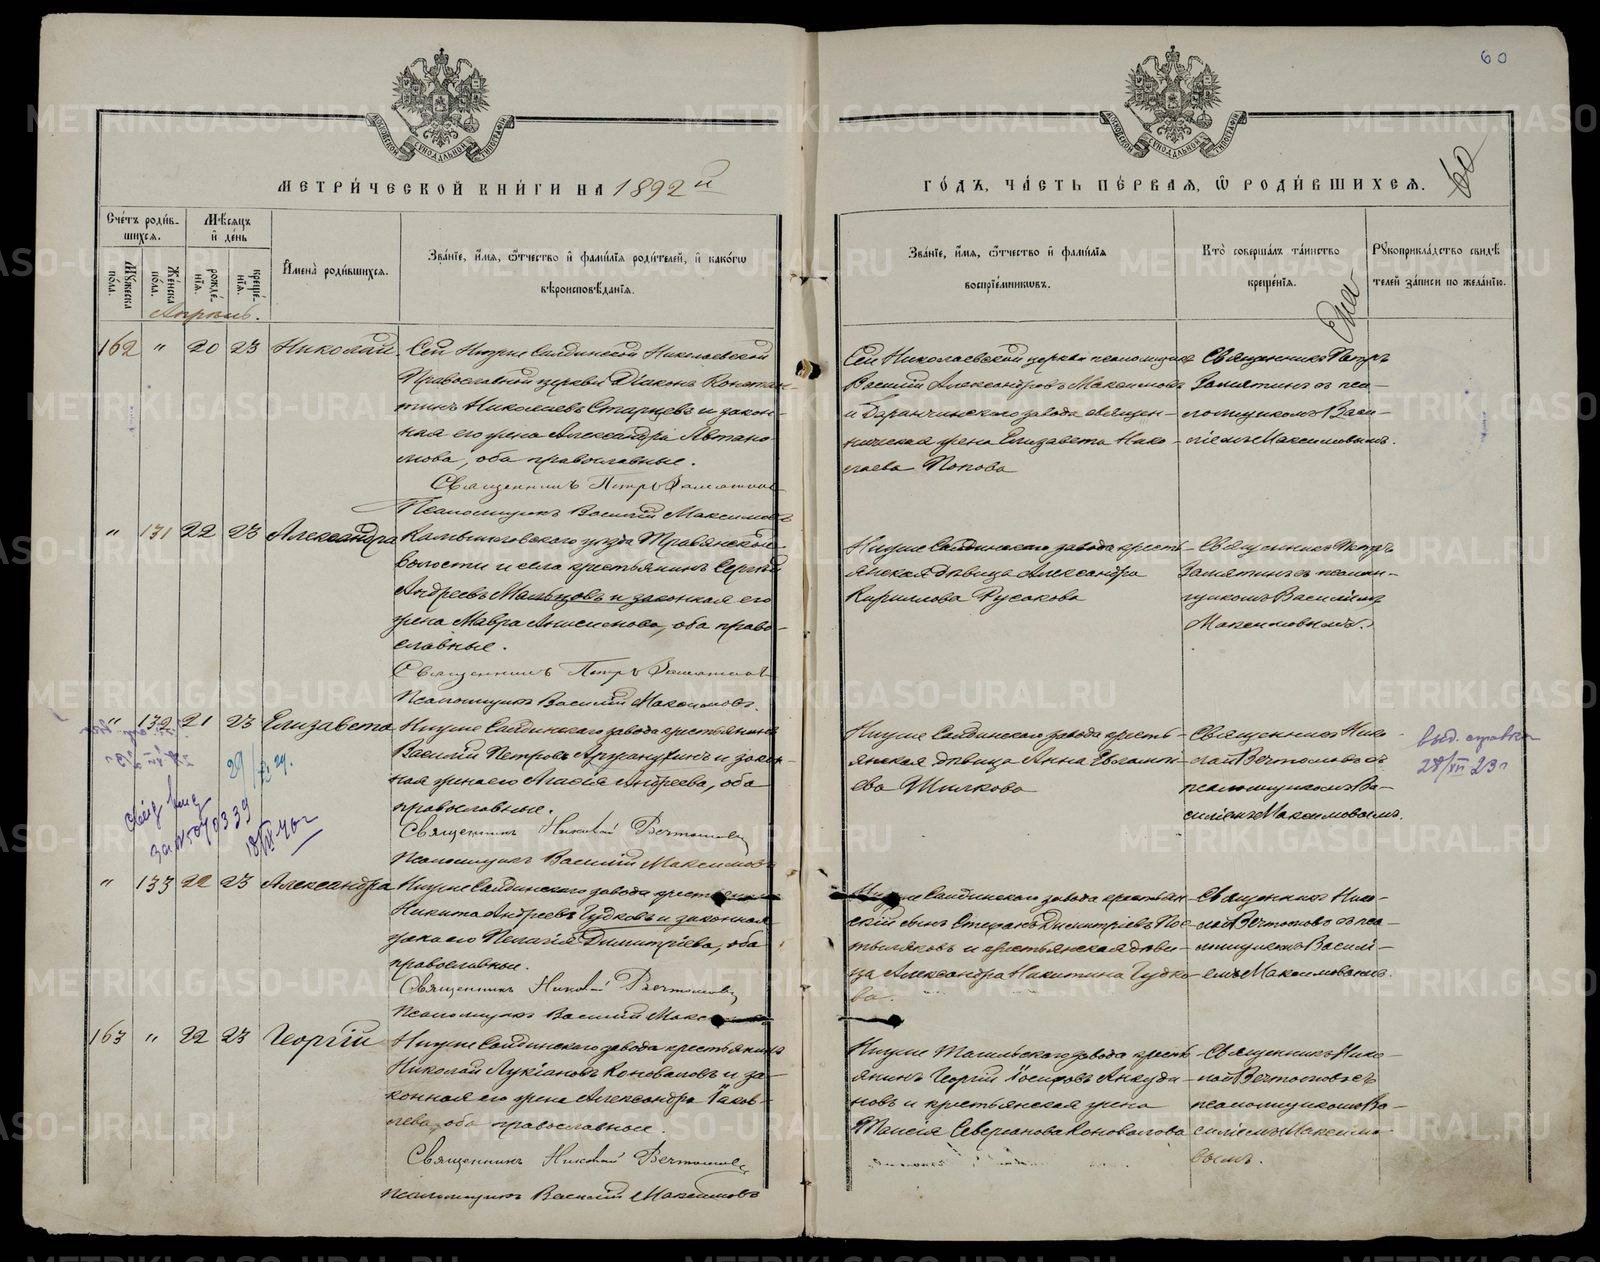 60
МОСКОВСКОЙ СУНОДАЛЬНОЙ ТИПОГРАФІИ
МОСКОВСКОЙ СУНОДАЛЬНОЙ ТИПОГРАФІИ
МЕТРИ́ЧЕСКОЙ КНИ́ГИ НА 1892 й
ГО́ДЪ, ЧА́СТЬ ПЕ́РВАЯ, Ѿ РОДИ́ВШИХСЯ.
60
Сче́тъ роди́в-
шихся.
Мѣсяцъ
и҆ де́нь
Му́жеска по́ла.
Же́нска по́ла.
рожде́нїѧ.
креще́нїѧ.
И҆мена̀ роди́вшихся.
Зва́нїе, и҆́мя, ѿтчество и҆ фами́лїя роди́телей, и҆ како́гѡ
вѣроисповѣ́данїя.
Зва́нїе, и҆́мя, ѿтчество и҆ фами́лїя
воспрїе́мниковъ.
Кто̀ соверша́лъ та́инство
креще́нїя.
Рꙋкоприкла́дство свидѣ́
телей за́писи по жела́нїю.
Апрѣль.
162 " 20 23 Николай.
Сей Нижне Салдинской Николаевской
Православной церкви Діаконъ Констан-
тинъ Николаевъ Старцевъ и закон-
ная его жена Александра Автано-
мова, оба православные.
Священникъ Петръ Замятинъ
Псаломщикъ Василій Максимовъ
Сей Николаевской церкви псаломщикъ
Василій Александровъ Максимовъ
и Баранчинскаго завода священ-
ническая жена Елизавета Нико-
лаева Попова
Священникъ Петръ
Замятинъ съ пса-
ломщикомъ Васи-
ліемъ Максимовымъ.
" 131 22 23 Александра
Камышловскаго уѣзда Травянской
волости и села крестьянинъ Сергѣй
Андреевъ Мальцовъ и законная его
жена Мавра Анисимова, оба право-
славные.
Священникъ Петръ Замятинъ
Псаломщикъ Василій Максимовъ.
Нижне Салдинскаго завода кресть-
янская дѣвица Александра
Кириллова Русакова
Священникъ Петръ
Замятинъ съ псалом-
щикомъ Василіемъ
Максимовымъ.
" 132 21 23 Елизавета
Нижне Салдинскаго завода крестьянинъ
Василій Петровъ и закон-
ная жена его Андреева, оба
православные.
Священникъ Николай
Псаломщикъ Василій Максимовъ
Нижне Салдинскаго завода кресть-
янская дѣвица Анна Евгеніи-
ева Шилкова
Священникъ Нико-
лай съ
псаломщикомъ Ва-
силіемъ Максимовымъ.
выд. справка
28/VII 23г
29/XI 29.
" 133 22 23 Александра
Нижне Салдинскаго завода крестьянинъ
Никита Андреевъ Гудковъ и законная
жена его Пелагія Димитріева, оба
православные.
Священникъ Николай
Псаломщикъ Василій
Нижне Салдинскаго завода крестьян-
скій сынъ Стефанъ Димитріевъ Пос-
тыляковъ и крестьянская дѣви-
ца Александра Никитина Гудко-
ва.
Священникъ Нико-
лай съ пса-
ломщикомъ Василі-
емъ Максимовымъ.
163 " 22 23 Георгій
Нижне Салдинскаго завода крестьянинъ
Николай Лукіановъ Коноваловъ и за-
конная его жена Александра Іаков-
лева, оба православные.
Священникъ Николай
Псаломщикъ Василій Максимовъ
Нижне Тагильскаго завода кресть-
янинъ Георгій Іосифовъ Анкуди-
новъ и крестьянская жена
Таисія Северіанова Коновалова
Священникъ Нико-
лай съ
псаломщикомъ Ва-
силіемъ Максимо-
вымъ.
METRIKI.GASO-URAL.RU